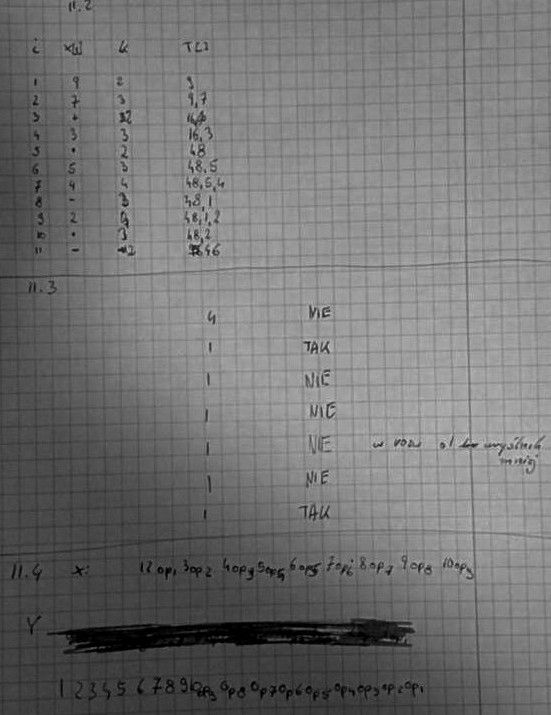 11.2
i x[i] k T[]
1 9 2 9
2 7 3 9,7
3 + 2 16
4 3 3 16,3
5 • 2 48
6 5 3 48,5
7 4 4 48,5,4
8 - 3 48,1
9 2 4 48,1,2
10 • 3 48,2
11 - 2 46
11.3
4 NIE
1 TAK
1 NIE
1 NIE
1 NIE w
1 NIE mniej
1 TAK
11.4 x: 12op1 3op2 4op3 5op4 6op5 7op6 8op7 9op8 10op9
Y
1 2 3 4 5 6 7 8 9 10op9 op8 op7 op6 op5 op4 op3 op2 op1